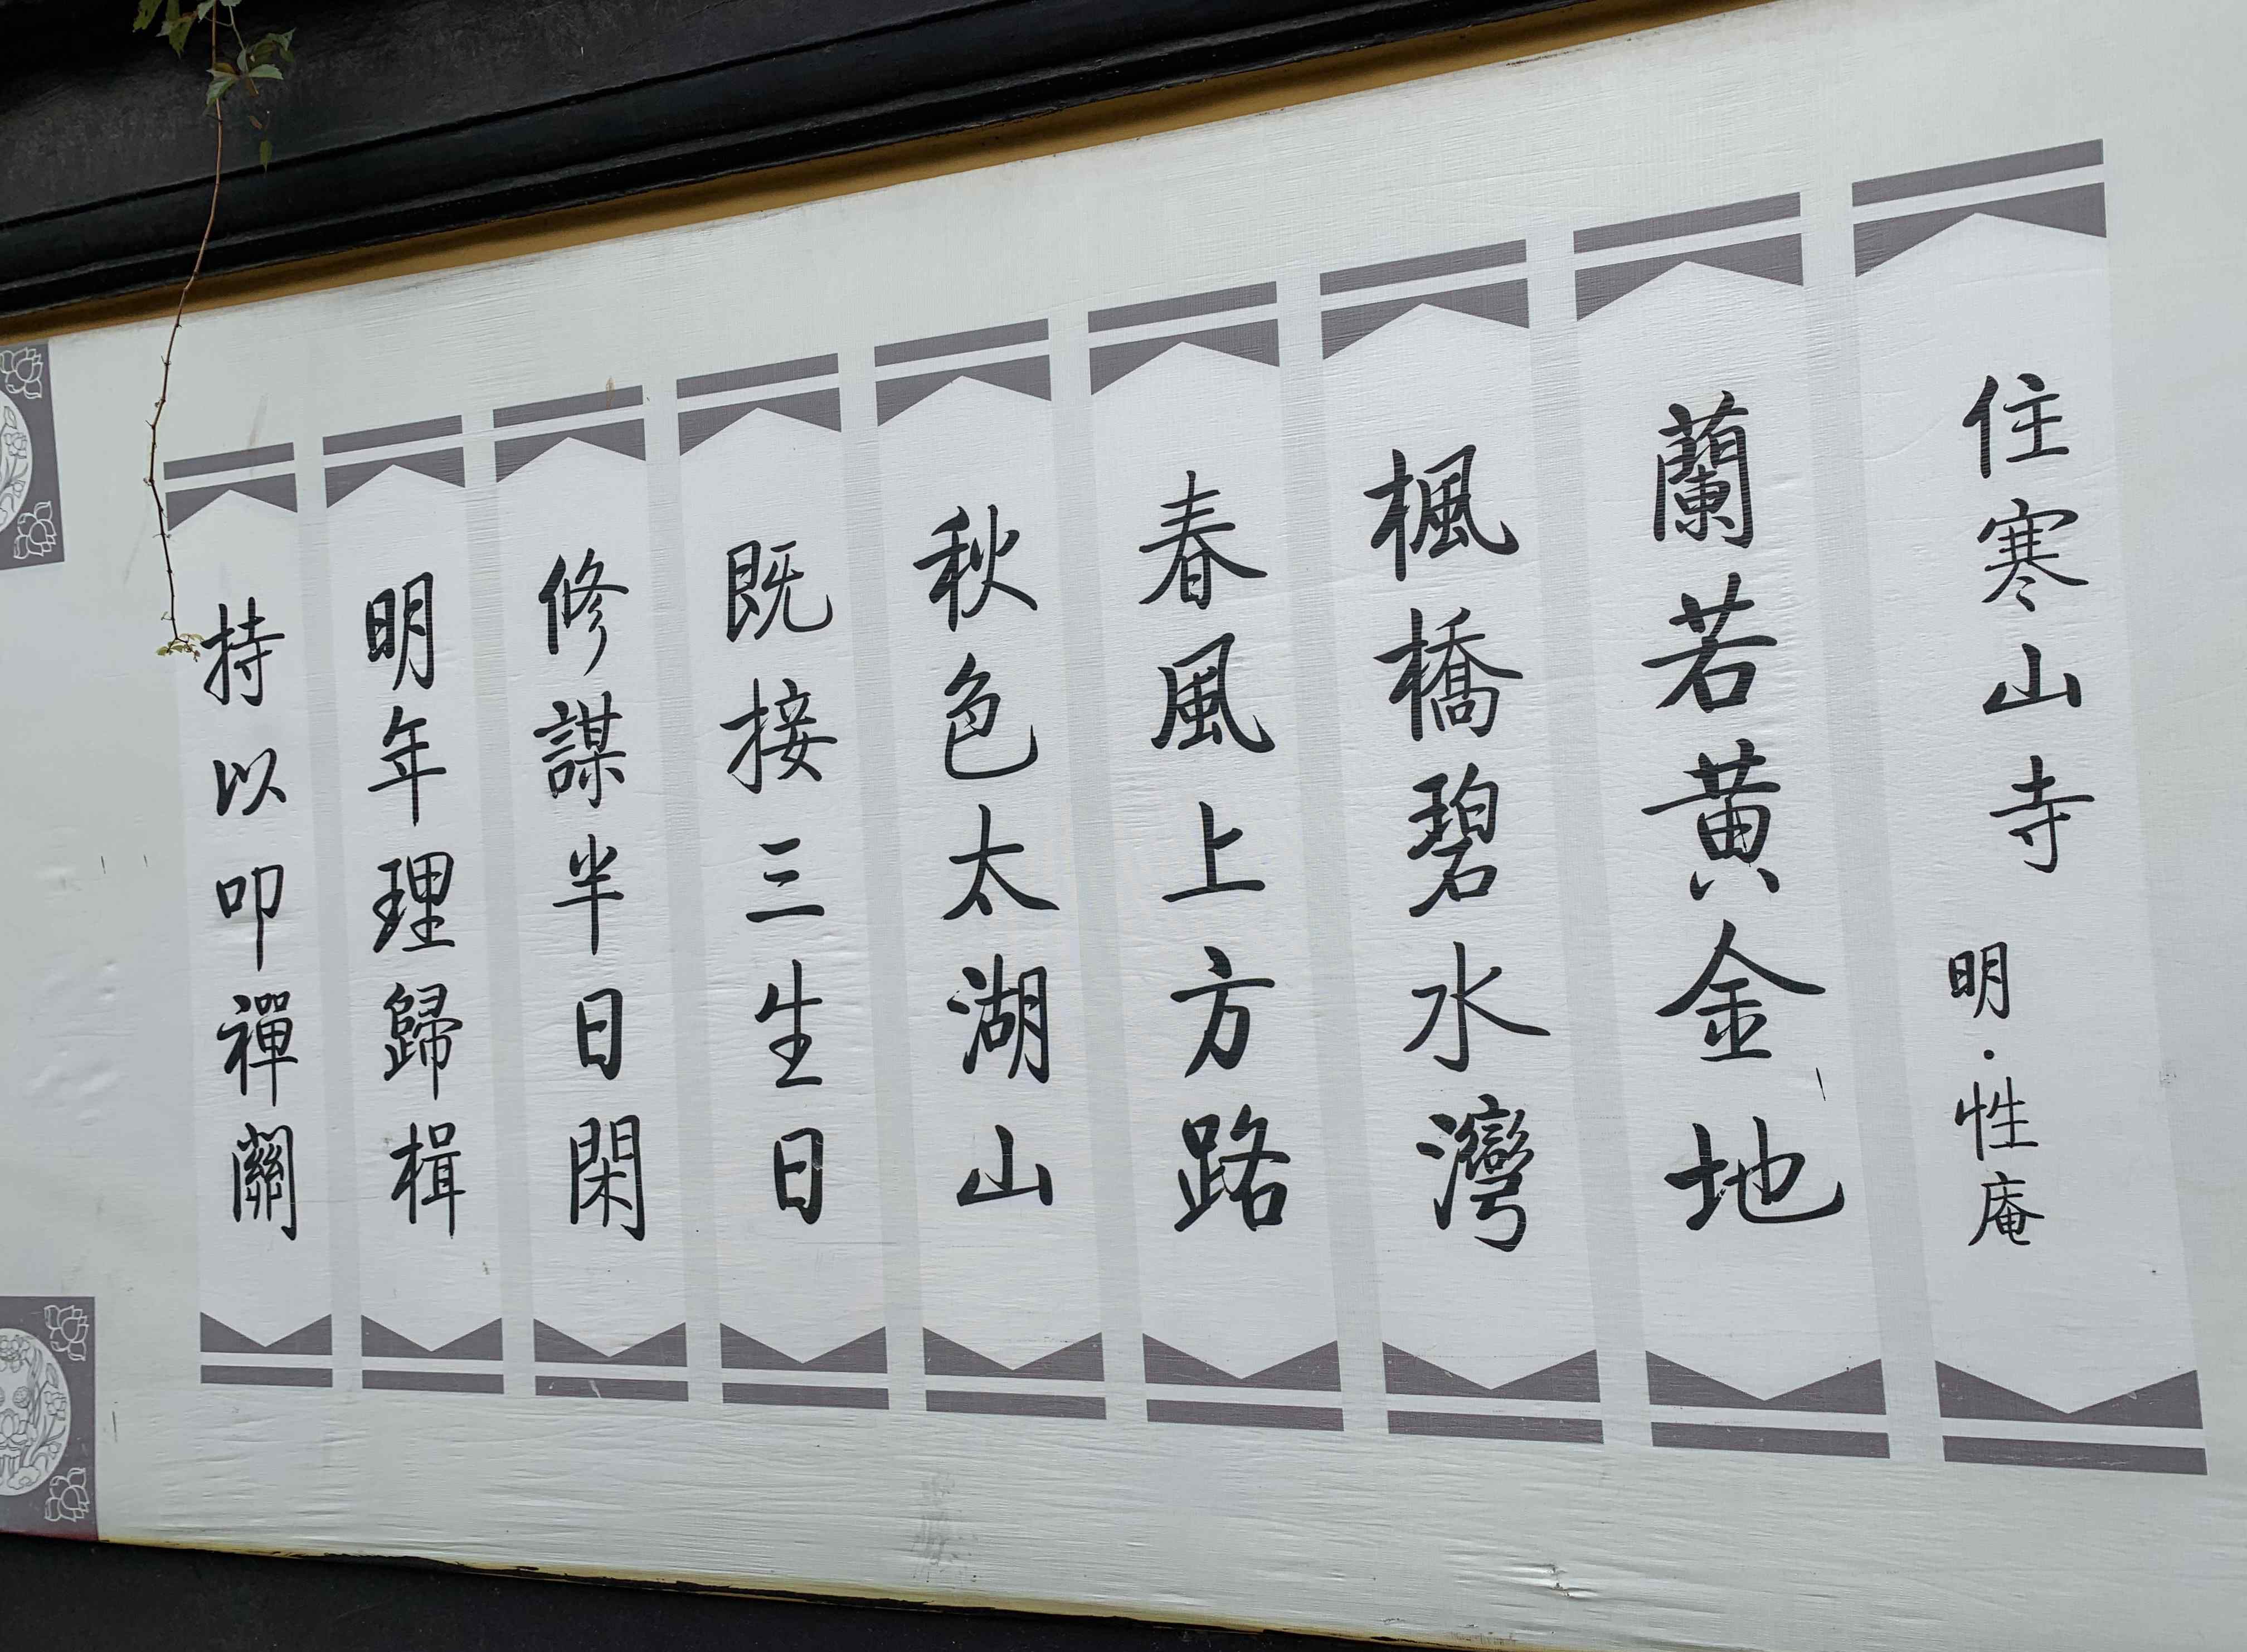 住寒山寺 明·性庵
蘭若黄金地
楓橋碧水灣
春風上方路
秋色太湖山
既接三生日
修謀半日閑
明年理歸楫
持以叩禪關